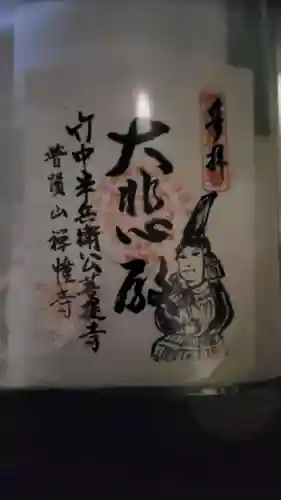 奉拝
大悲殿
竹中半兵衛公菩提寺
菩提山禅幢寺